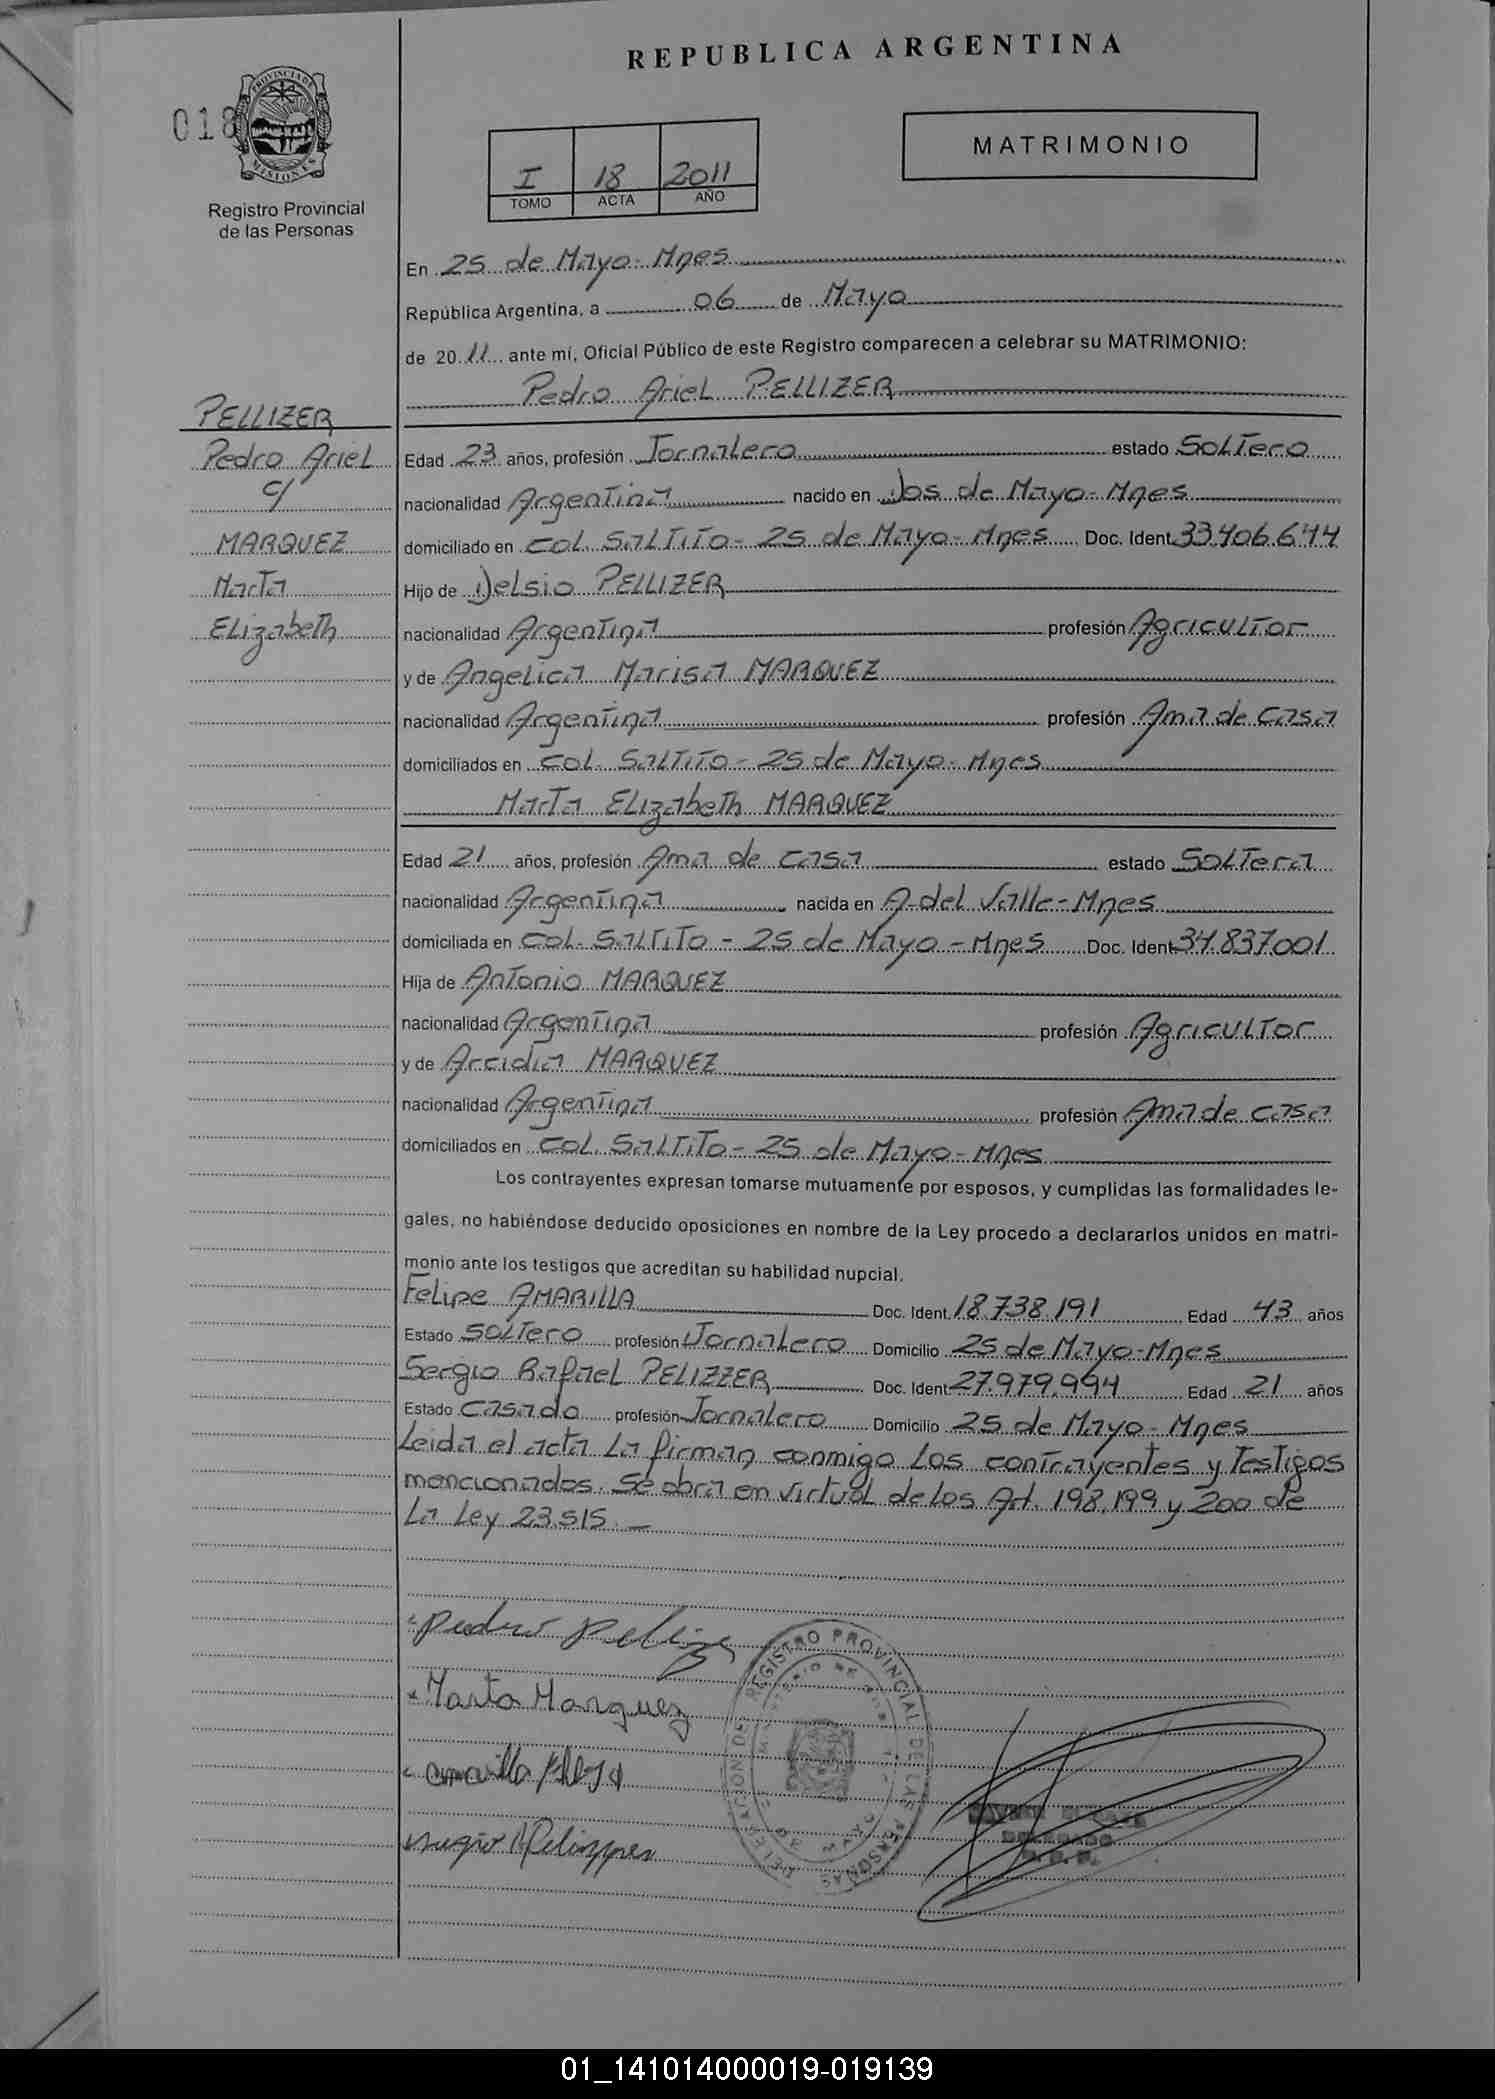 REPUBLICA ARGENTINA
018
PROVINCIA DE
MISIONES
Registro Provincial
de las Personas
I 18 2011
TOMO ACTA AÑO
MATRIMONIO
En 25 de Mayo - Mnes
República Argentina, a 06 de Mayo
de 2011 ante mí, Oficial Público de este Registro comparecen a celebrar su MATRIMONIO:
Pedro Ariel PELLIZER
PELLIZER
Pedro Ariel
c/
MARQUEZ
Marta
Elizabeth
Edad 23 años, profesión Jornalero estado Soltero
nacionalidad Argentina nacido en Dos de Mayo - Mnes
domiciliado en Col. Saltito - 25 de Mayo - Mnes Doc. Ident. 33.406.644
Hijo de Delsio PELLIZER
nacionalidad Argentina profesión Agricultor
y de Angelica Marisa MARQUEZ
nacionalidad Argentina profesión Ama de casa
domiciliados en Col. Saltito - 25 de Mayo - Mnes
Marta Elizabeth MARQUEZ
Edad 21 años, profesión Ama de casa estado Soltera
nacionalidad Argentina nacida en A. del Valle - Mnes
domiciliada en Col. Saltito - 25 de Mayo - Mnes Doc. Ident. 34.837.001
Hija de Antonio MARQUEZ
nacionalidad Argentina profesión Agricultor
y de Arcidia MARQUEZ
nacionalidad Argentina profesión Ama de casa
domiciliados en Col. Saltito - 25 de Mayo - Mnes
Los contrayentes expresan tomarse mutuamente por esposos, y cumplidas las formalidades le-
gales, no habiéndose deducido oposiciones en nombre de la Ley procedo a declararlos unidos en matri-
monio ante los testigos que acreditan su habilidad nupcial.
Felipe AMARILLA Doc. Ident. 18.738.191 Edad 43 años
Estado Soltero profesión Jornalero Domicilio 25 de Mayo - Mnes
Sergio Rafael PELIZZER Doc. Ident. 27.979.994 Edad 21 años
Estado Casado profesión Jornalero Domicilio 25 de Mayo - Mnes
Leida el acta la firman conmigo los contrayentes y testigos
mencionados. Se obra en virtud de los Art. 198, 199 y 200 de
La Ley 23.515. —
Pedro Pellizer
Marta Marquez
amarilla
Sergio R Pelizzer
REGISTRO PROVINCIAL DE LAS PERSONAS
DELEGADO
01_141014000019-019139